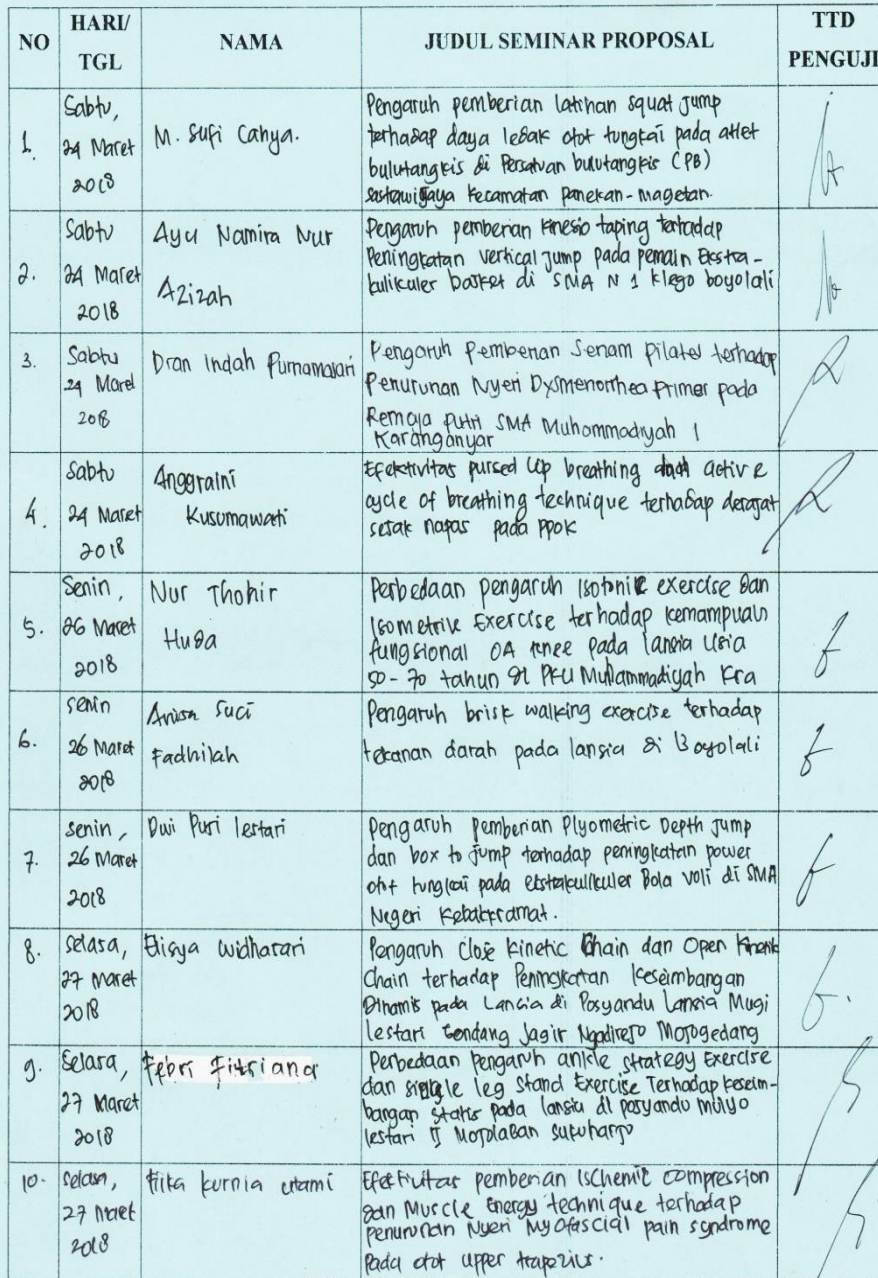 NO HARI/ TGL NAMA JUDUL SEMINAR PROPOSAL TTD PENGUJI
1. Sabtu, 24 Maret 2018 M. Sufi Cahya.
Pengaruh pemberian latihan squat jump
terhadap daya ledak otot tungkai pada atlet
bulutangkis di Persatuan bulutangkis (PB)
sastrawijaya Kecamatan Panekan-Magetan.
2. Sabtu 24 Maret 2018 Ayu Namira Nur Azizah
Pengaruh pemberian kinesio taping terhadap
Peningkatan vertical jump pada pemain Ekstra-
kulikuler basket di SMA N 1 klego boyolali
3. Sabtu 24 Maret 2018 Dian Indah Purnamasari
Pengaruh Pemberian Senam pilates terhadap
Penurunan Nyeri Dysmenorrhea Primer pada
Remaja putri SMA Muhammadiyah 1
Karanganyar
4. Sabtu 24 Maret 2018 Anggraini Kusumawati
Efektivitas pursed lip breathing dan active
cycle of breathing technique terhadap derajat
sesak napas pada PPOK
5. Senin, 26 Maret 2018 Nur Thohir Huda
Perbedaan pengaruh Isotonik exercise dan
Isometrik Exercise terhadap kemampuan
fungsional OA knee pada lansia Usia
50-70 tahun di PKU Muhammadiyah Kra
6. senin 26 Maret 2018 Anisa Suci Fadhilah
Pengaruh brisk walking exercise terhadap
tekanan darah pada lansia di Boyolali
7. senin, 26 Maret 2018 Dwi Puri lestari
Pengaruh pemberian Plyometric Depth Jump
dan box to jump terhadap peningkatan power
otot tungkai pada ekstrakulikuler Bola voli di SMA
Negeri Kebakkramat.
8. selasa, 27 Maret 2018 Elisya widharari
Pengaruh Close Kinetic Chain dan Open Kinetik
Chain terhadap Peningkatan Keseimbangan
Dinamis pada Lansia di Posyandu Lansia Mugi
lestari Gondang Jagir Ngadirejo Mojogedang
9. Selasa, 27 Maret 2018 Febri Fitriana
Perbedaan Pengaruh ankle strategy Exercise
dan single leg Stand Exercise Terhadap keseim-
bangan statis pada lansia di posyandu mulyo
lestari II Mojolaban sukoharjo
10. selasa, 27 Maret 2018 Fika kurnia utami
Efektivitas pemberian Ischemic compression
dan Muscle Energy technique terhadap
penurunan Nyeri Myofascial pain syndrome
Pada otot upper trapezius.